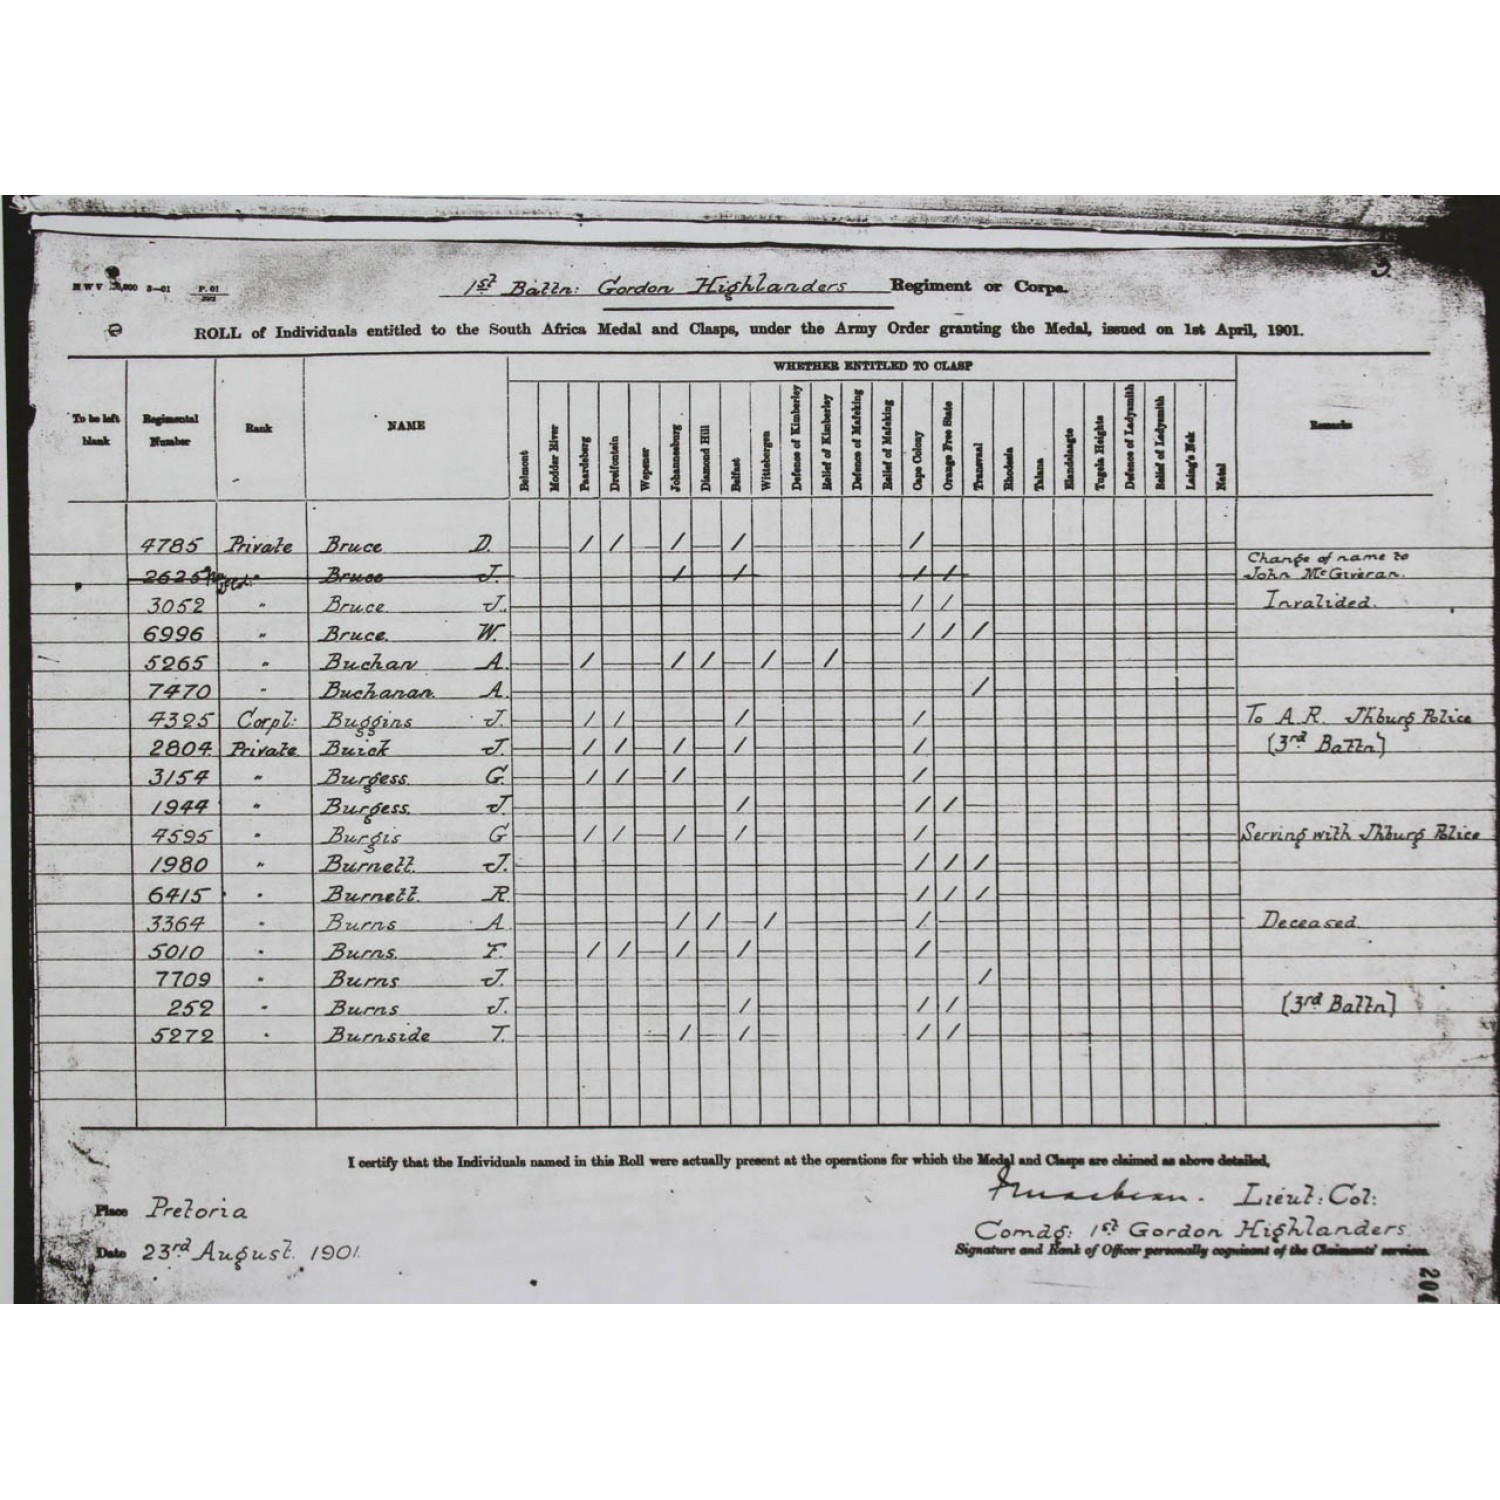 3.
1st Battn: Gordon Highlanders Regiment or Corps.
ROLL of Individuals entitled to the South Africa Medal and Clasps, under the Army Order granting the Medal, issued on 1st April, 1901.
WHETHER ENTITLED TO CLASP
To be left blank Regimental Number Rank NAME Belmont Modder River Paardeberg Dreifontein Wepener Johannesburg Diamond Hill Belfast Wittebergen Defence of Kimberley Relief of Kimberley Defence of Mafeking Relief of Mafeking Cape Colony Orange Free State Transvaal Rhodesia Talana Elandslaagte Tugela Heights Defence of Ladysmith Relief of Ladysmith Laing's Nek Natal Remarks
4785 Private Bruce D. / / / / /
2625 " Bruce J. / / / / Change of name to John McGiveran.
3052 " Bruce J. / / Invalided.
6996 " Bruce. W. / / /
5265 " Buchan A. / / / / /
7470 " Buchanan. A. /
4325 Corpl: Buggins J. / / / / To A.R. Jhburg Police
2804 Private Buick J. / / / / / (3rd Battn)
3154 " Burgess. G. / / / /
1944 " Burgess. J. / / /
4595 " Burgis G / / / / / Serving with Jhburg Police
1980 " Burnett. J. / / /
6415 " Burnett. R. / / /
3364 " Burns A. / / / / Deceased.
5010 " Burns. F. / / / / /
7709 " Burns J. /
252 " Burns J. / / / (3rd Battn)
5272 " Burnside T. / / / /
I certify that the Individuals named in this Roll were actually present at the operations for which the Medal and Clasps are claimed as above detailed,
Lieut: Col:
Place Pretoria
Comdg: 1st Gordon Highlanders.
Date 23rd August. 1901.
Signature and Rank of Officer personally cognisant of the Claimants' services.
204